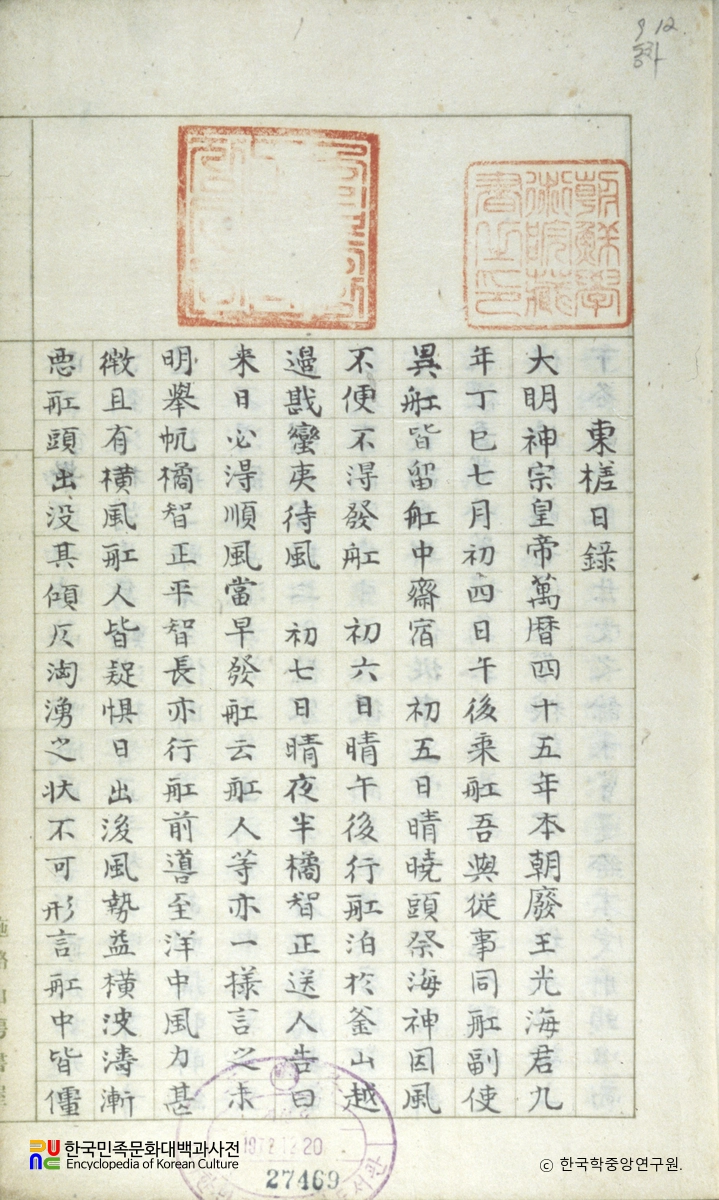 朝鮮學
術院藏
書之印
東槎日錄
大明神宗皇帝萬暦四十五年本朝廢王光海君九
年丁巳七月初四日午後乘舡吾與從事同舡副使
異舡皆留舡中齋宿 初五日晴曉頭祭海神因風
不便不淂發舡 初六日晴午後行舡泊於釜山越
邉戡蠻夷待風 初七日晴夜半橘智正送人告曰
来日必淂順風當早發舡云舡人等亦一様言之未
明擧帆橘智正平智長亦行舡前導至洋中風力甚
微且有橫風舡人皆疑惧日出後風勢益橫波濤漸
悪舡頭出没其傾仄洶湧之状不可形言舡中皆僵
27469
한국민족문화대백과사전
Encyclopedia of Korean Culture
© 한국학중앙연구원.